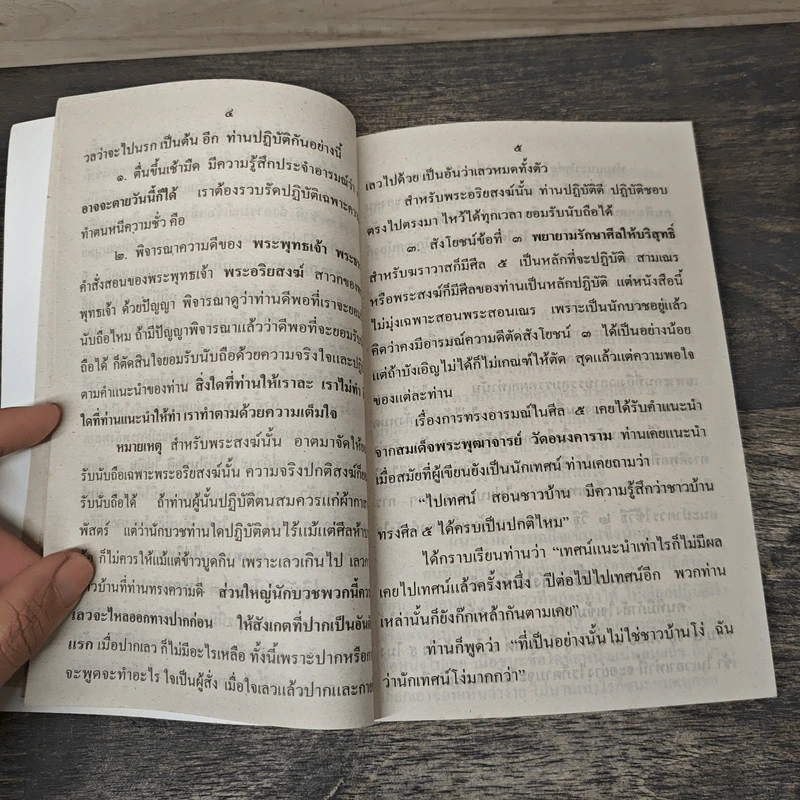 ๔
วลว่าจะไปนรก เป็นต้น อีก ท่านปฏิบัติกันอย่างนี้
๑. ตื่นขึ้นเช้ามืด มีความรู้สึกประจำอารมณ์ว่า
อาจจะตายวันนี้ก็ได้ เราต้องรวบรัดปฏิบัติเฉพาะ
ทำตนหนีความชั่ว คือ
๒. พิจารณาความดีของ พระพุทธเจ้า
คำสั่งสอนของพระพุทธเจ้า พระอริยสงฆ์ สาวก
พุทธเจ้า ด้วยปัญญา พิจารณาดูว่าท่านดีพอที่เราจะ
นับถือไหม ถ้ามีปัญญาพิจารณาแล้วว่าดีพอที่จะยอมรับ
ถือได้ ก็ตัดสินใจยอมรับนับถือด้วยความจริงใจและ
ตามคำแนะนำของท่าน สิ่งใดที่ท่านให้เราละ เราไม่ทำ
ใดที่ท่านแนะนำให้ทำ เราทำตามด้วยความเต็มใจ
หมายเหตุ สำหรับพระสงฆ์นั้น อาตมาจัดให้
รับนับถือเฉพาะพระอริยสงฆ์นั้น ความจริงปกติสงฆ์ก็
รับนับถือได้ ถ้าท่านผู้นั้นปฏิบัติตนสมควรแก่ผ้า
พัสตร์ แต่ว่านักบวชท่านใดปฏิบัติตนไร้แม้แต่ศีลห้า
ก็ไม่ควรให้แม้แต่ข้าวบูดกิน เพราะเลวเกินไป เลว
บ้านที่ท่านทรงความดี ส่วนใหญ่นักบวชพวกนี้
เลวจะไหลออกทางปากก่อน ให้สังเกตที่ปากเป็นอัน
แรก เมื่อปากเลว ก็ไม่มีอะไรเหลือ ทั้งนี้เพราะปากหรือ
จะพูดจะทำอะไร ใจเป็นผู้สั่ง เมื่อใจเลวแล้วปากและ
๕
เลวไปด้วย เป็นอันว่าเลวหมดทั้งตัว
สำหรับพระอริยสงฆ์นั้น ท่านปฏิบัติดี ปฏิบัติชอบ
ตรงไปตรงมา ไหว้ได้ทุกเวลา ยอมรับนับถือได้
๓. สังโยชน์ข้อที่ ๓ พยายามรักษาศีลให้บริสุทธิ์
สำหรับฆราวาสก็มีศีล ๕ เป็นหลักที่จะปฏิบัติ สามเณร
หรือพระสงฆ์ก็มีศีลของท่านเป็นหลักปฏิบัติ แต่หนังสือนี้
ไม่มุ่งเฉพาะสอนพระสอนเณร เพราะเป็นนักบวชอยู่แล้ว
คิดว่าคงมีอารมณ์ความดีตัดสังโยชน์ ๓ ได้เป็นอย่างน้อย
แต่ถ้าบังเอิญไม่ได้ก็ไม่เกณฑ์ให้ตัด สุดแล้วแต่ความพอใจ
ของแต่ละท่าน
เรื่องการทรงอารมณ์ในศีล ๕ เคยได้รับคำแนะนำ
จากสมเด็จพระพุฒาจารย์ วัดอนงคาราม ท่านเคยแนะนำ
เมื่อสมัยที่ผู้เขียนยังเป็นนักเทศน์ ท่านเคยถามว่า
“ไปเทศน์ สอนชาวบ้าน มีความรู้สึกว่าชาวบ้าน
ทรงศีล ๕ ได้ครบเป็นปกติไหม”
ได้กราบเรียนท่านว่า “เทศน์แนะนำเท่าไรก็ไม่มีผล
เคยไปเทศน์แล้วครั้งหนึ่ง ปีต่อไปไปเทศน์อีก พวกท่าน
เหล่านั้นก็ยังก๊กเหล้ากันตามเคย”
ท่านก็พูดว่า “ที่เป็นอย่างนั้นไม่ใช่ชาวบ้านโง่ ฉัน
ว่านักเทศน์โง่มากกว่า”